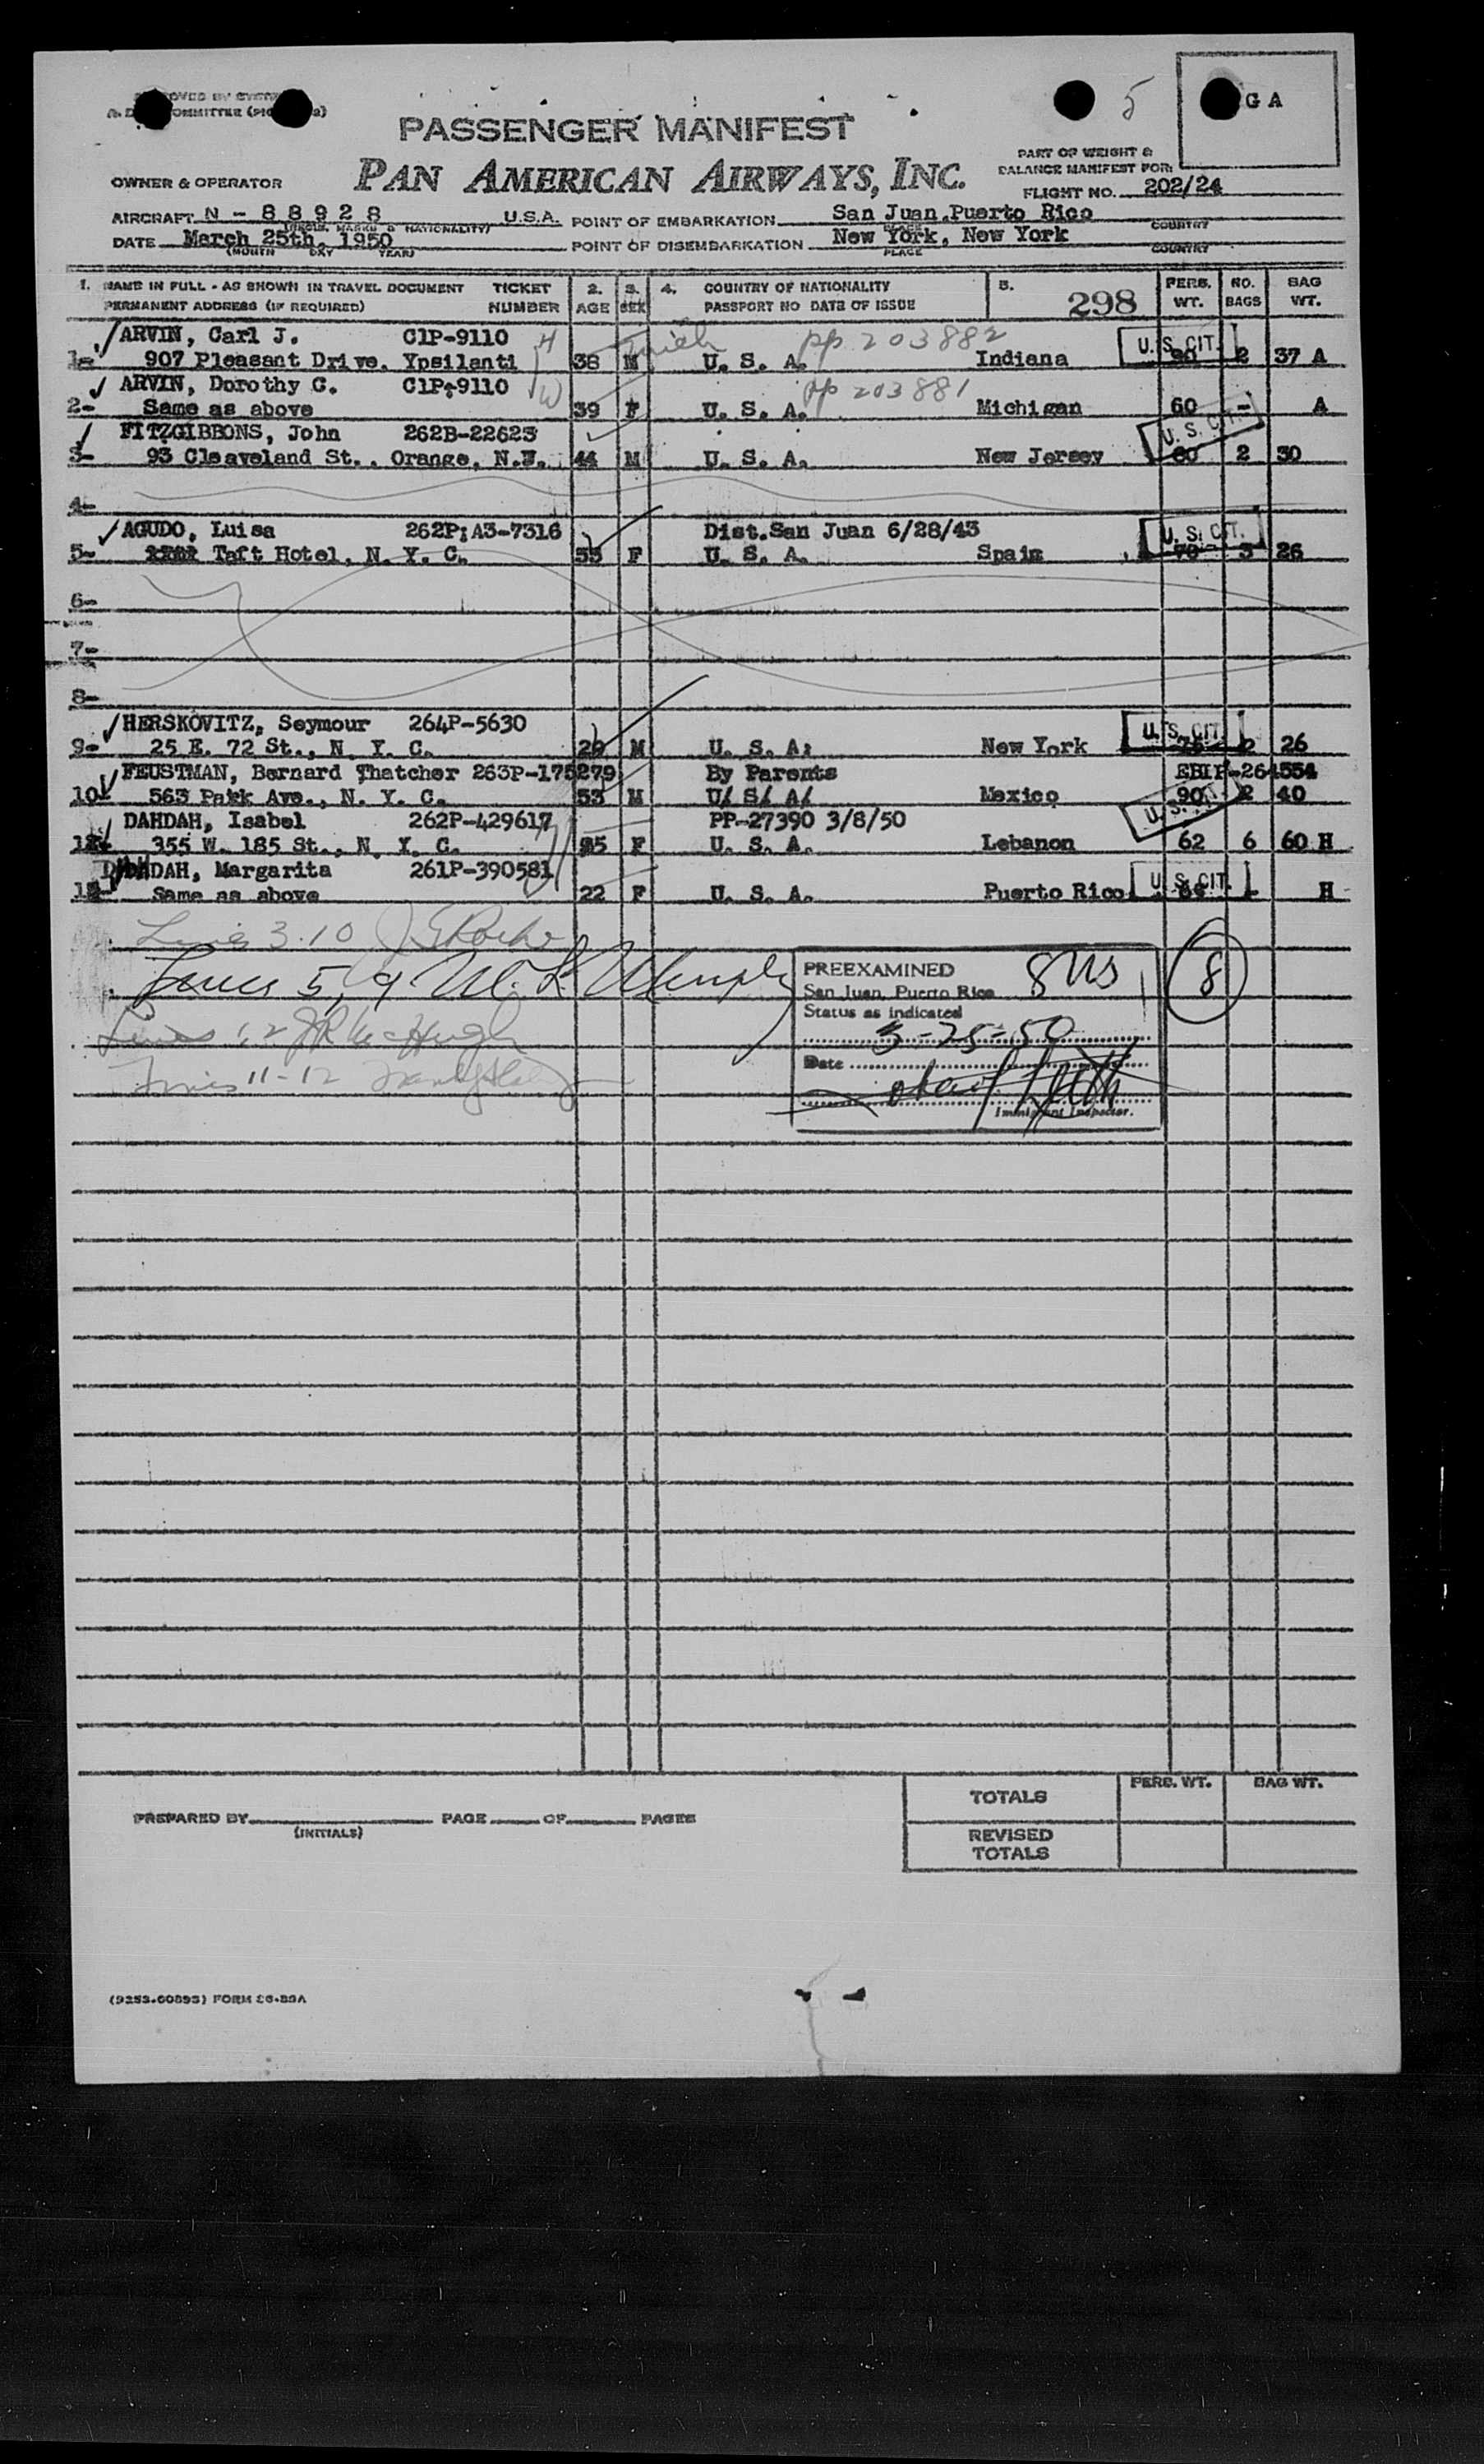 5
G A
PASSENGER MANIFEST
PAN AMERICAN AIRWAYS, INC.
PART OF WEIGHT &
BALANCE MANIFEST FOR:
OWNER & OPERATOR
FLIGHT NO. 202/24
AIRCRAFT N - 8 8 9 2 8 U.S.A. POINT OF EMBARKATION San Juan.Puerto Rico
COUNTRY
DATE March 25th, 1950 POINT OF DISEMBARKATION New York, New York
(MONTH DAY YEAR) PLACE COUNTRY
1. NAME IN FULL - AS SHOWN IN TRAVEL DOCUMENT TICKET 2. 3. 4. COUNTRY OF NATIONALITY 5. PERS. NO. BAG
PERMANENT ADDRESS (IF REQUIRED) NUMBER AGE SEX PASSPORT NO DATE OF ISSUE 298 WT. BAGS WT.
ARVIN, Carl J. C1P-9110 H pp 203882 U. S. CIT.
1- 907 Pleasant Drive. Ypsilanti 38 M U. S. A. Indiana 2 37 A
ARVIN, Dorothy C. C1P-9110 W pp 203881
2- Same as above 39 F U. S. A. Michigan 60 - A
FITZGIBBONS, John 262B-22623 U. S. CIT.
3- 93 Cleaveland St.. Orange, N.J. 44 M U. S. A. New Jersey 2 30
4-
AGUDO, Luisa 262P;A3-7316 Dist.San Juan 6/28/43 U. S. CIT.
5- Taft Hotel, N. Y. C. 55 F U. S. A. Spain 70 3 26
6-
7-
8-
HERSKOVITZ, Seymour 264P-5630 U. S. CIT.
9- 25 E. 72 St., N. Y. C. M U. S. A. New York 2 26
FEUSTMAN, Bernard Thatcher 263P-175279 By Parents
10- 563 Park Ave., N. Y. C. 53 M U/ S/ A/ Mexico 90 2 40
DAHDAH, Isabel 262P-429617 PP-27390 3/8/50 U. S.
355 W. 185 St., N. Y. C. F U. S. A. Lebanon 62 6 60 H
DAHDAH, Margarita 261P-390581 U. S. CIT.
Same as above 22 F U. S. A. Puerto Rico H
3.10
5, 9
PREEXAMINED 8 US 8
San Juan, Puerto Rico
Status as indicated
Lines 1, 2
3-25-50
Date
Lines 11-12
Immigrant Inspector.
PERS. WT. BAG WT.
TOTALS
PREPARED BY PAGE OF PAGES
(INITIALS)
REVISED
TOTALS